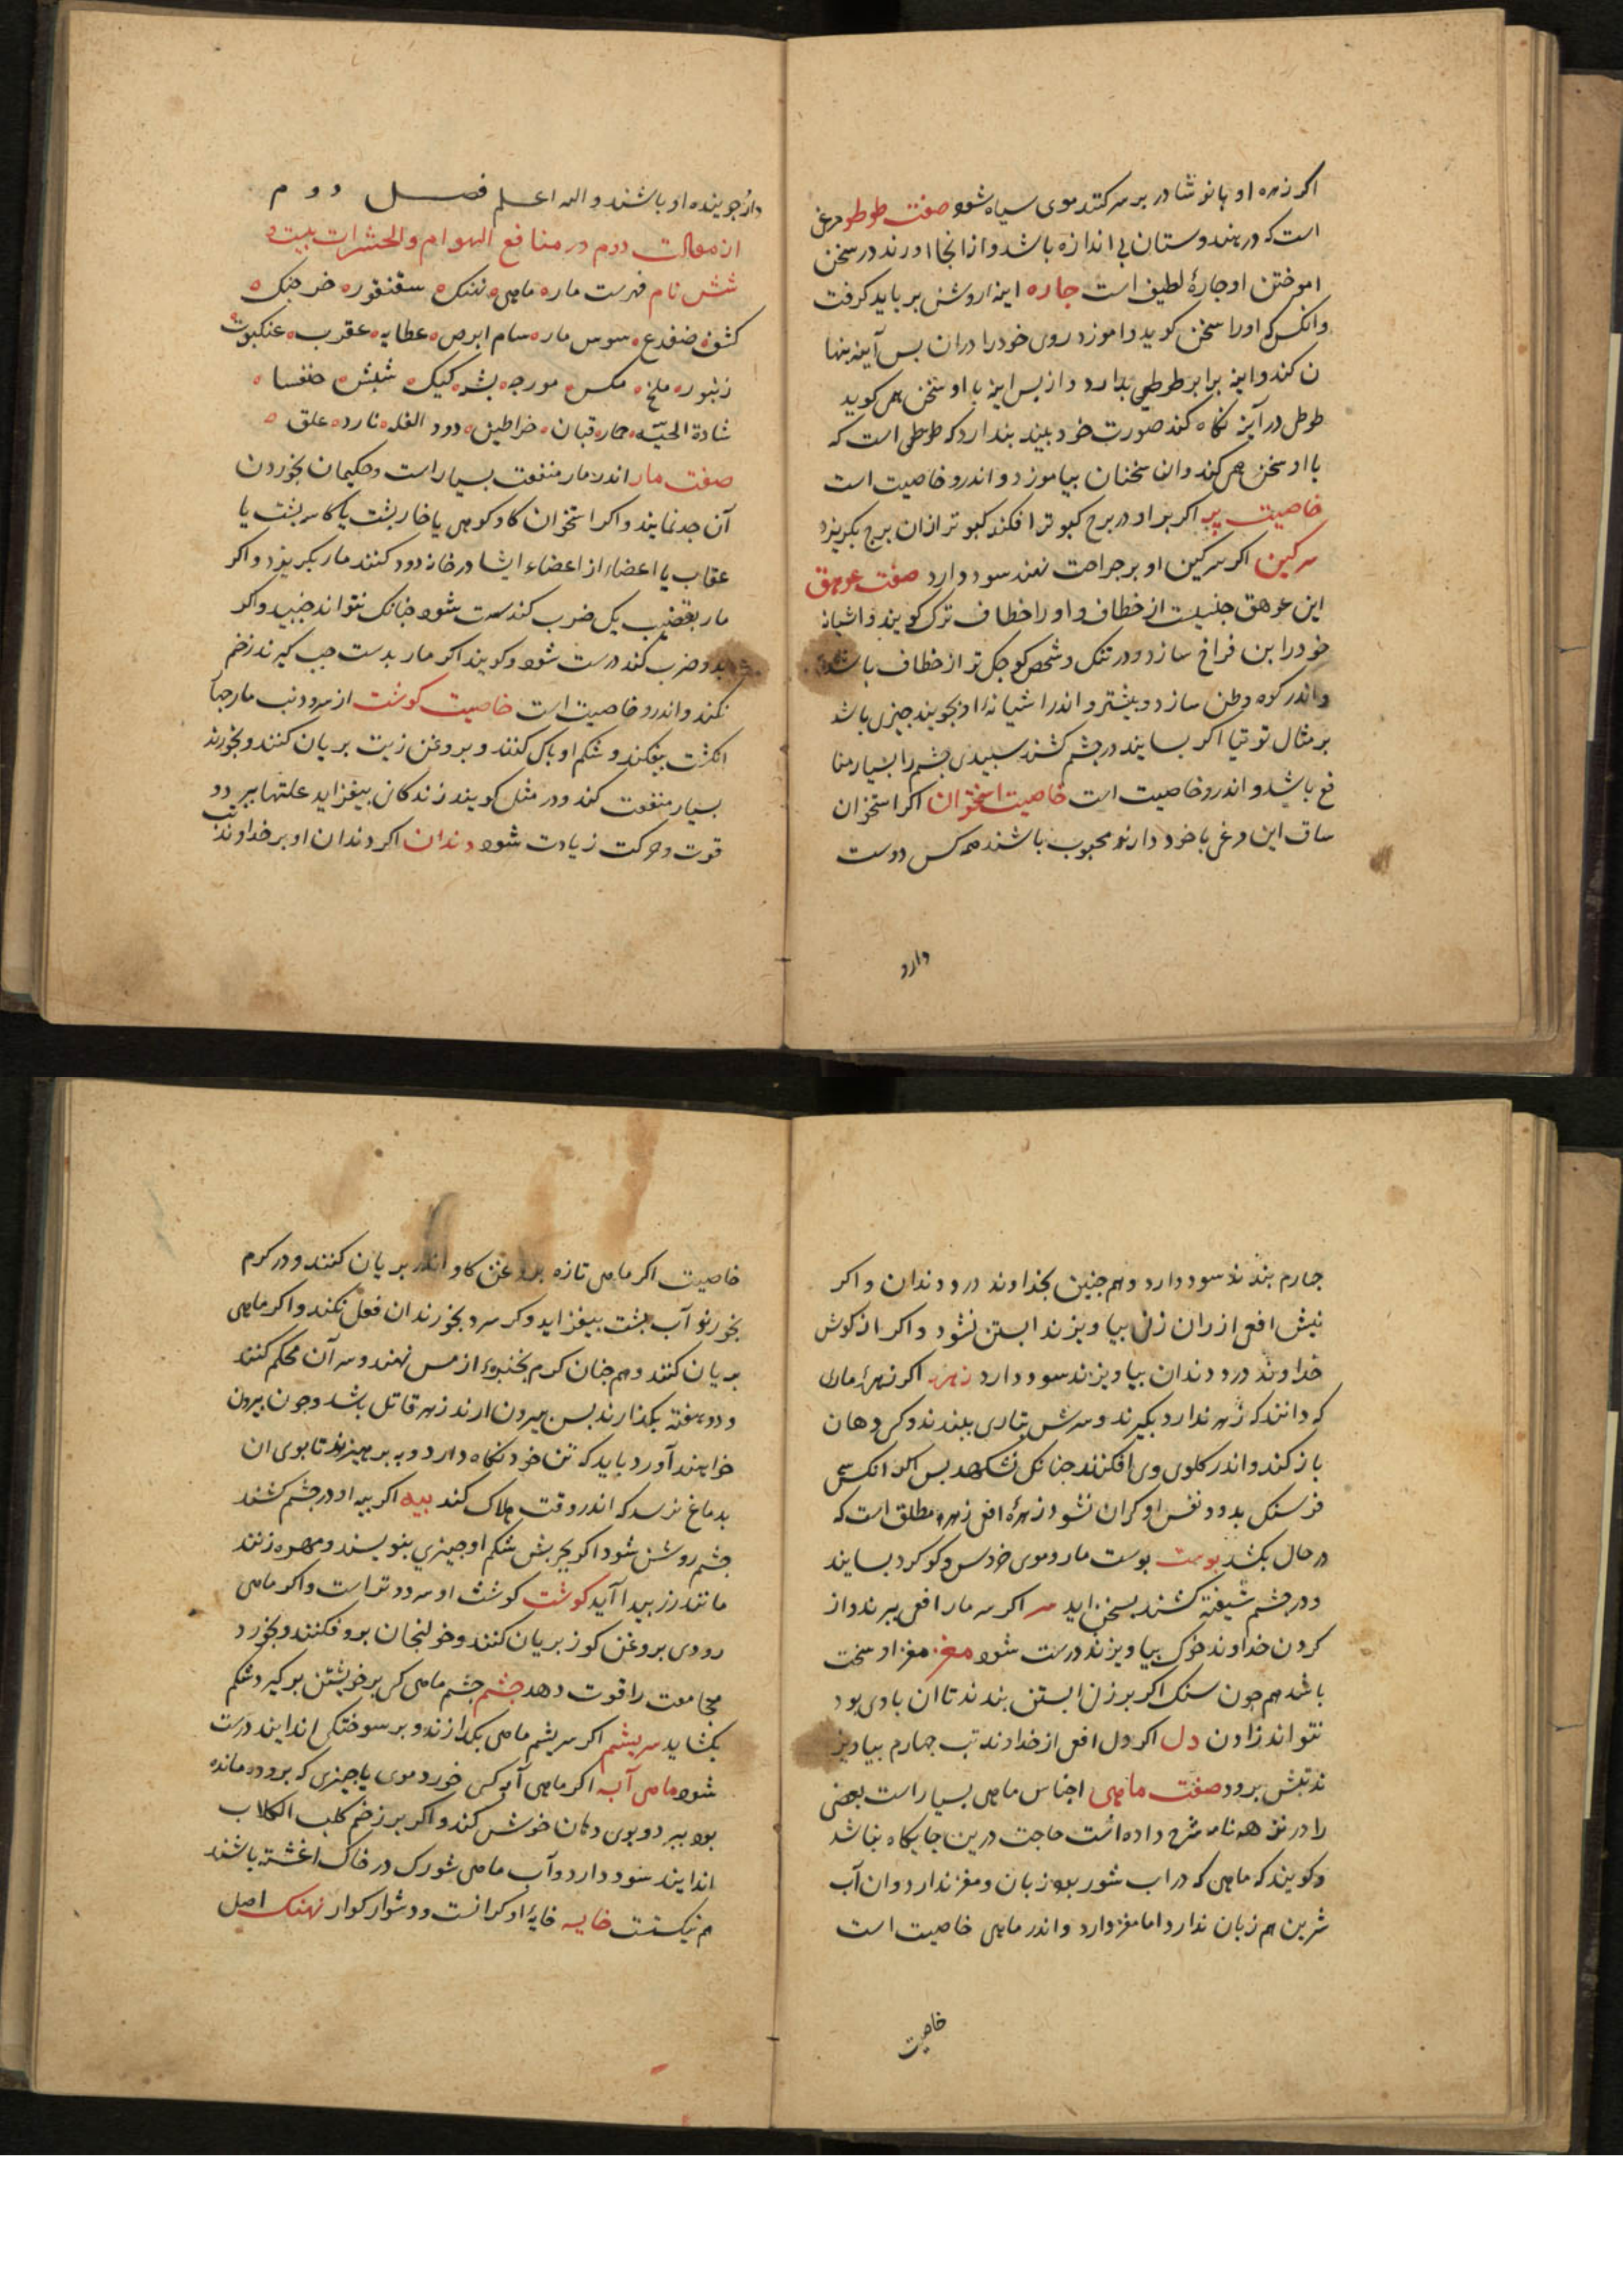 اکر زهره او با نوشادر بر سر کنند موی سیاه شود صفت طوطو مرغی
است که در هندوستان بی اندازه باشد و از انجا اورند در سخن
اموختن او جارهٔ لطیف است جاره اینهٔ روشن بر باید کرفت
وانکس که اورا سخن کوید و اموزد روی خود را در ان بس آینه بنها
ن کند و اینه برابر طوطی بدارد و از بس اینه با او سخن همی کوید
طوطی در آینه نکاه کند صورت خود بیند بندارد که طوطی است که
با او سخن همی کند و ان سخنان بیاموزد و اندرو خاصیت است
خاصیت پر اکر پر او در برج کبوتر افکند کبوتر از ان برج بکریزد
سرکین اکر سرکین او بر جراحت نهند سود دارد صفت عوهق
این عوهق جنسیست از خطاف و او را خطاف ترک کویند و اشیانه
خود را بن فراخ سازد و در تنک و شخص کوجک تر از خطاف باشد
و اندر کوه وطن سازد و بیشتر و اندر اشیانهٔ او بجویند جیزی باشد
بر مثال توتیا اکر بسایند در جشم کشند سبیدی جشم را بسیار منا
فع باشد و اندرو خاصیت است خاصیت استخوان اکر استخوان
ساق این مرغ با خود دارند محبوب باشند همه کس دوست
دارد
دارد جوینده او باشند و الله اعلم فصل دوم
از مقالت دوم در منافع الهوام والحشرات بیست و
شش نام فهرست مار ماهی نهنک سقنقور خرجنک
کشف ضفدع سوس مار سام ابرص عطایه عقرب عنکبوت
زنبور ملخ مکس مورجه بشه کیک شبش خنفسا
شادة الحیّه حمار قبان خراطین دود الغله نارد علق
صفت مار اندر مار منفعت بسیار است و حکیمان بخوردن
آن جد نمایند و اکر استخوان کاو کوهی یا خاربشت یا کاسه بشت یا
عقاب یا اعضاء از اعضاء ایشا در خانه دود کنند مار بکریزد و اکر
مار بقضیب یک ضرب کند سست شود جنانک نتواند جنبید و اکر
بدو ضرب کند درست شود و کویند اکر مار بدست جب کیرند زخم
نکند و اندرو خاصیت است خاصیت کوشت از سر و دنب مار جهار
انکشت بیفکند و شکم او باک کنند و بروغن زیت بریان کنند و بخورند
بسیار منفعت کند و در مثل کویند زندکانی بیفزاید علتها ببرد و
قوت و حرکت زیادت شود دندان اکر دندان او بر خداوند تب
جهارم بندند سود دارد و هم جنین بخداوند درد دندان و اکر
نیش افعی از ران زن بیاویزند ابستن نشود و اکر از کوش
خداوند درد دندان بیاویزند سود دارد زهره اکر زهرهٔ مارا
که دانند که زهر ندارد بکیرند و سرش بتاری ببندند و کسی دهان
باز کند و اندر کلوی وی افکنند جنانک نشکهد بس اکر انکس سی
فرسنک بدود نفس او کران نشود زهرهٔ افعی زهره مطلق است که
در حال بکشد بوست بوست مار و موی خروس و کوکرد بسایند
و در جشم شیفته کشند بسخن اید سر اکر سر مار افعی ببرند و از
کردن خداوند خوک بیاویزند درست شود مغز مغز او سخت
باشد هم جون سنک اکر بر زن ابستن بندند تا ان با وی بود
نتواند زادن دل اکر دل افعی از خداوند تب جهارم بیاویز
ند تبش برود صفت ماهی اجناس ماهی بسیار است بعضی
را در نزهه نامه شرح داده است حاجت درین جایکاه نباشد
و کویند که ماهی که در اب شور بود زبان و مغز ندارد و ان آب
شیرین هم زبان ندارد اما مغز دارد و اندر ماهی خاصیت است
خاصیت
خاصیت اکر ماهی تازه بروغن کاو اندر بریان کنند و در کرم
بخورند آب بشت بیفزاید و کر سرد بخورند ان فعل نکند و اکر ماهی
بریان کنند و هم جنان کرم بخنبرهٔ از مس نهند و سر آن محکم کنند
و دو هفته بکذارند بس بیرون ارند زهر قاتل باشد و جون بیرون
خواهند آورد باید که تن خود نکاه دارد و به برهیزند تا بوی ان
بدماغ نرسد که اندر وقت هلاک کند بیه اکر بیه او در جشم کشند
جشم روشن شود اکر بجربش شکم او جیزی بنویسند و مهره زنند
مانند زر بیدا آید کوشت کوشت او سرد و تر است و اکر ماهی
رودی بروغن کوز بریان کنند و خولنجان برو فکنند و بخورد
مجامعت را قوت دهد جشم جشم ماهی کسی بر خویشتن بر کیرد شکم
بکشاید سریشم اکر سریشم ماهی بکدازند و بر سوختکی اندایند درست
شود ماهی آبه اکر ماهی آبه کسی خورد موی یا جیزی که برو در مانده
بود ببرد و بوی دهان خوش کند و اکر بر زخم کلب الکلاب
اندایند سود دارد و آب ماهی شور ک در خاک اغشته باشند
هم نیکست خایه خایهٔ او کرانست و دشوار کوار نهنک اصل